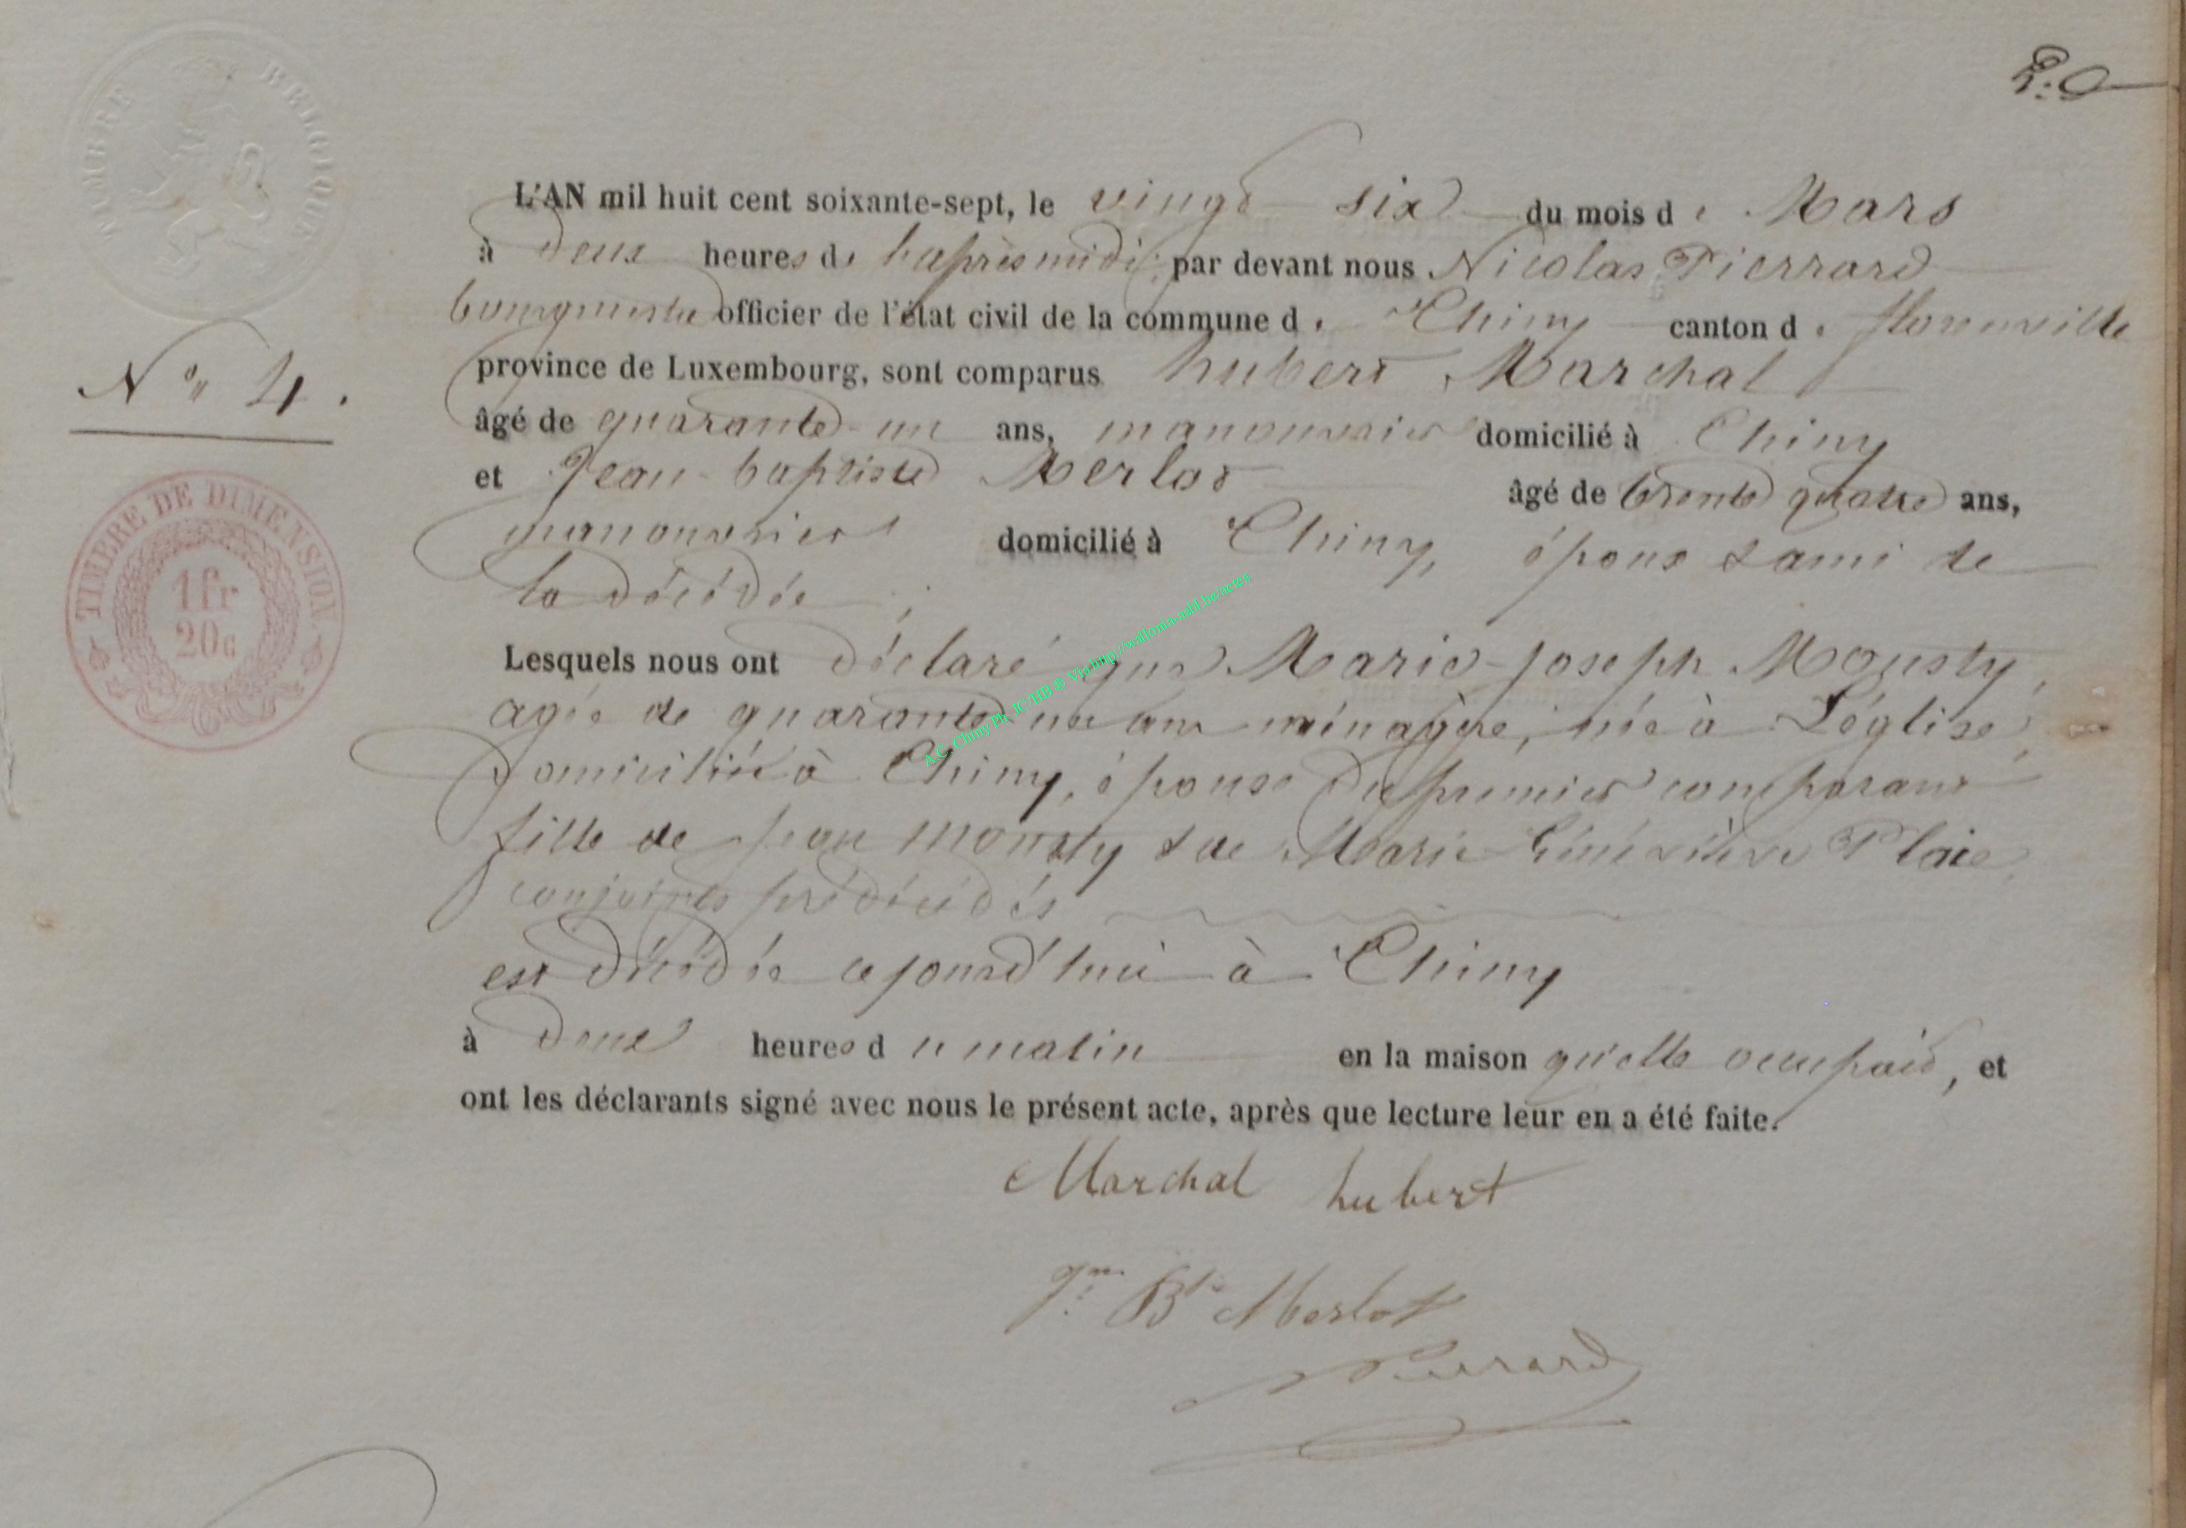 TIMBRE BELGIQUE
L'AN mil huit cent soixante-sept, le vingt six du mois de Mars
à deux heures de l'après midi, par devant nous Nicolas Pierrard
bourgmestre officier de l'état civil de la commune de Chiny canton de florenville
province de Luxembourg, sont comparus hubert Marchal
N° 4.
âgé de quarante un ans, manouvrier domicilié à Chiny
et Jean-baptiste Merlot âgé de trente quatre ans,
manouvrier domicilié à Chiny, époux & ami de
la décédée ;
TIMBRE DE DIMENSION
1 fr
20 c
Lesquels nous ont déclaré que Marie-joseph Mousty,
agée de quarante un ans ménagère, née à Léglise,
domiciliée à Chiny, épouse du premier comparant
fille de jean Mousty & de Marie Généviève Plaie,
conjoints prédécédés
est décédée cejourd'hui à Chiny
à deux heures du matin en la maison qu'elle occupait, et
ont les déclarants signé avec nous le présent acte, après que lecture leur en a été faite.
Marchal hubert
Jn Bte Merlot
Pierrard
A.C. Chiny Ph. JC HB ® Via http://wallonia-asbl.be/actes